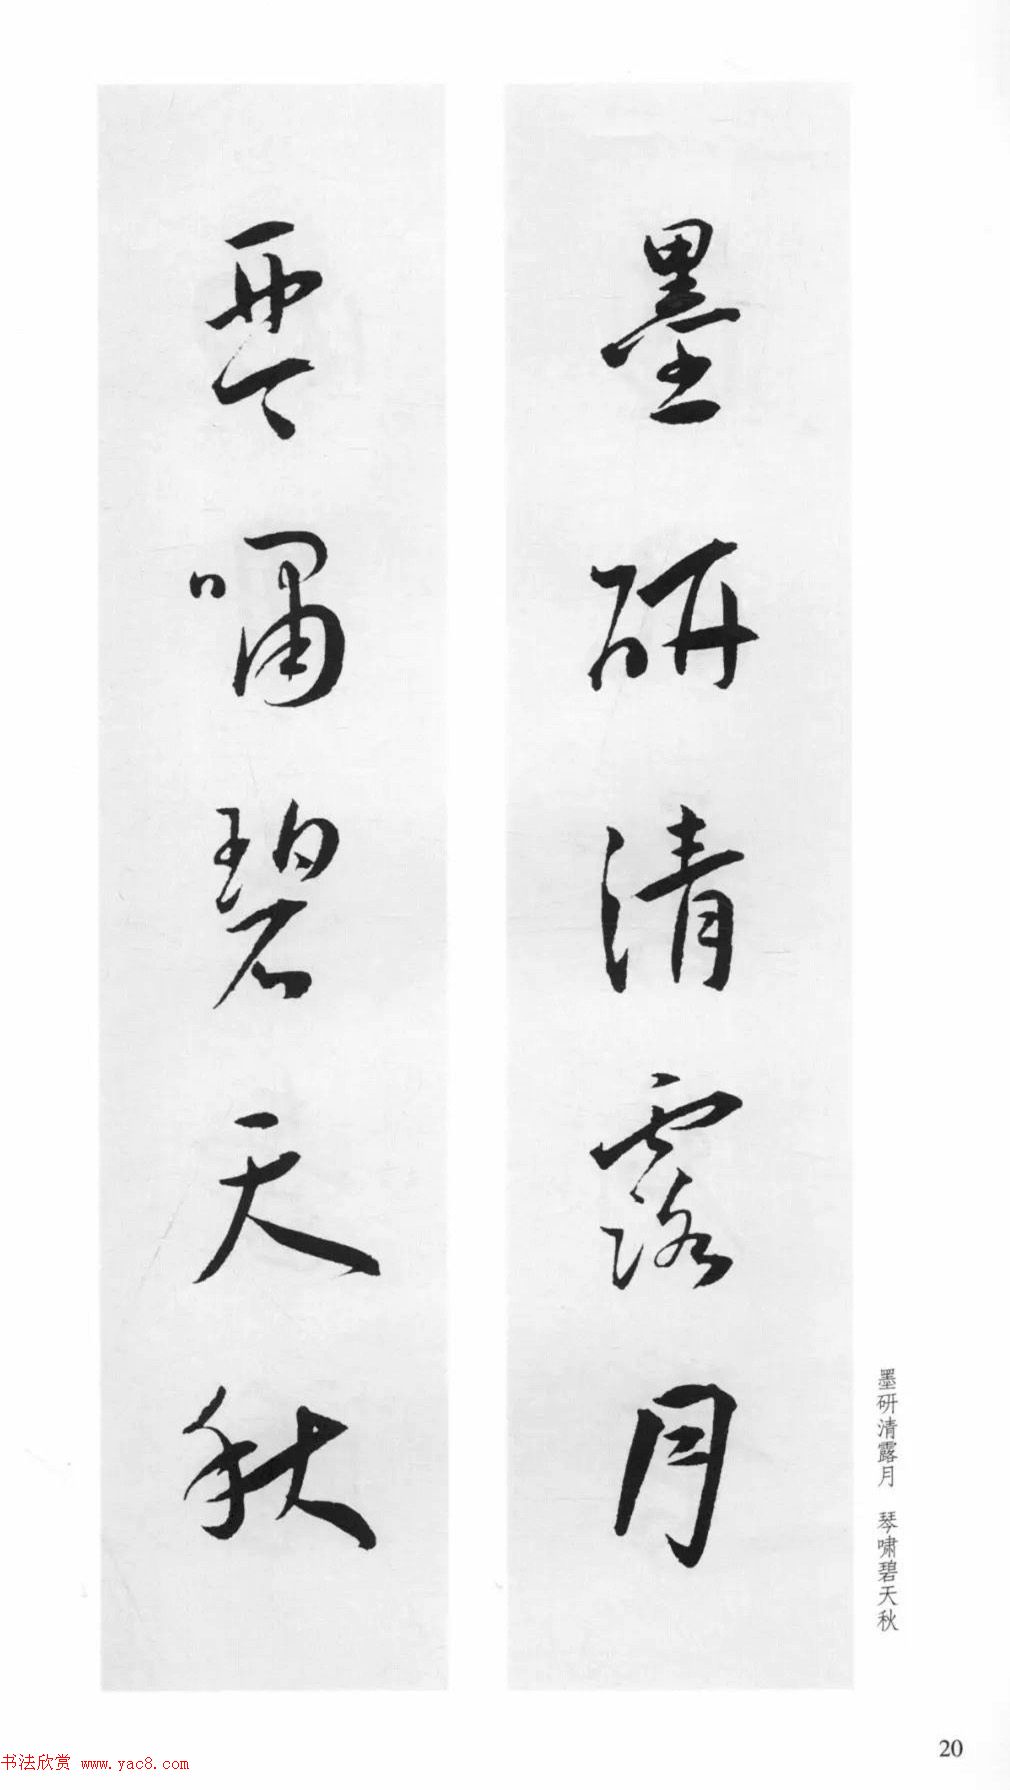 墨研清露月
琴啸碧天秋
墨研清露月 琴啸碧天秋
20
书法欣赏 www.yac8.com